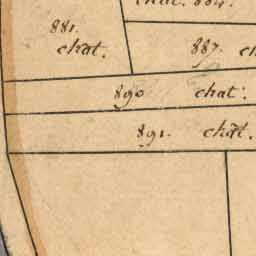 chat. 884.
881.
chat.
887. ch
890 chat:
891. chat.